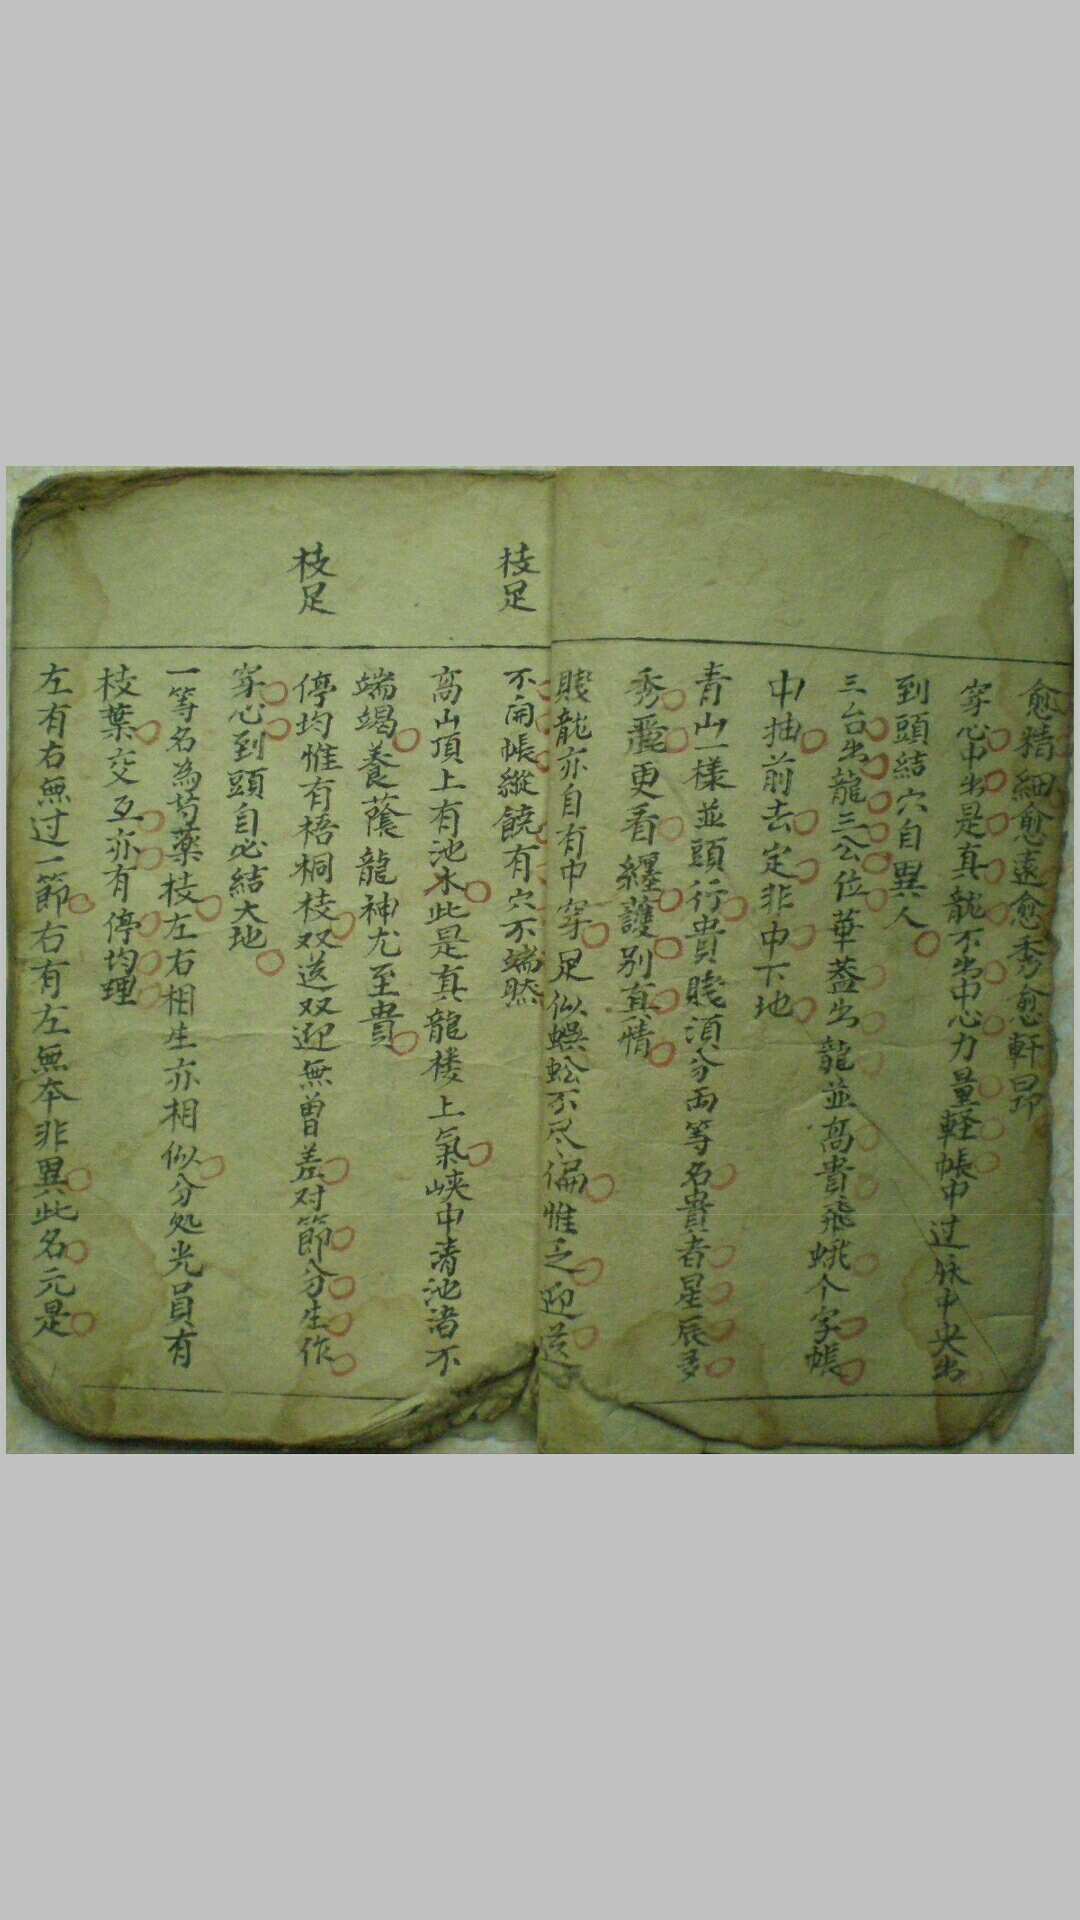 愈精細愈遠愈秀愈軒昂
穿心中出是真龍不出中心力量軽帳中过脉中央出
到頭結穴自異人
三台出龍三公位華蓋出龍並髙貴飛蛾个字帳
中抽前去定非中下地
青山一様並頭行貴賤須分両等名貴者星辰多
秀麗更看纏護別真情
賤龍亦自有中穿足似蜈蚣不尽偏惟乏迎送
枝足
不開帳縱饒有穴不端然
髙山頂上有池水此是真龍楼上氣峡中清池渚不
端竭養蔭龍神尤至貴
枝足
停均惟有梧桐枝双送双迎無曽差对節分生作
穿心到頭自必結大地
一等名為芍藥枝左右相生亦相似分処光員有
枝葉交互亦有停均理
左有右無过一節右有左無本非異此名元是